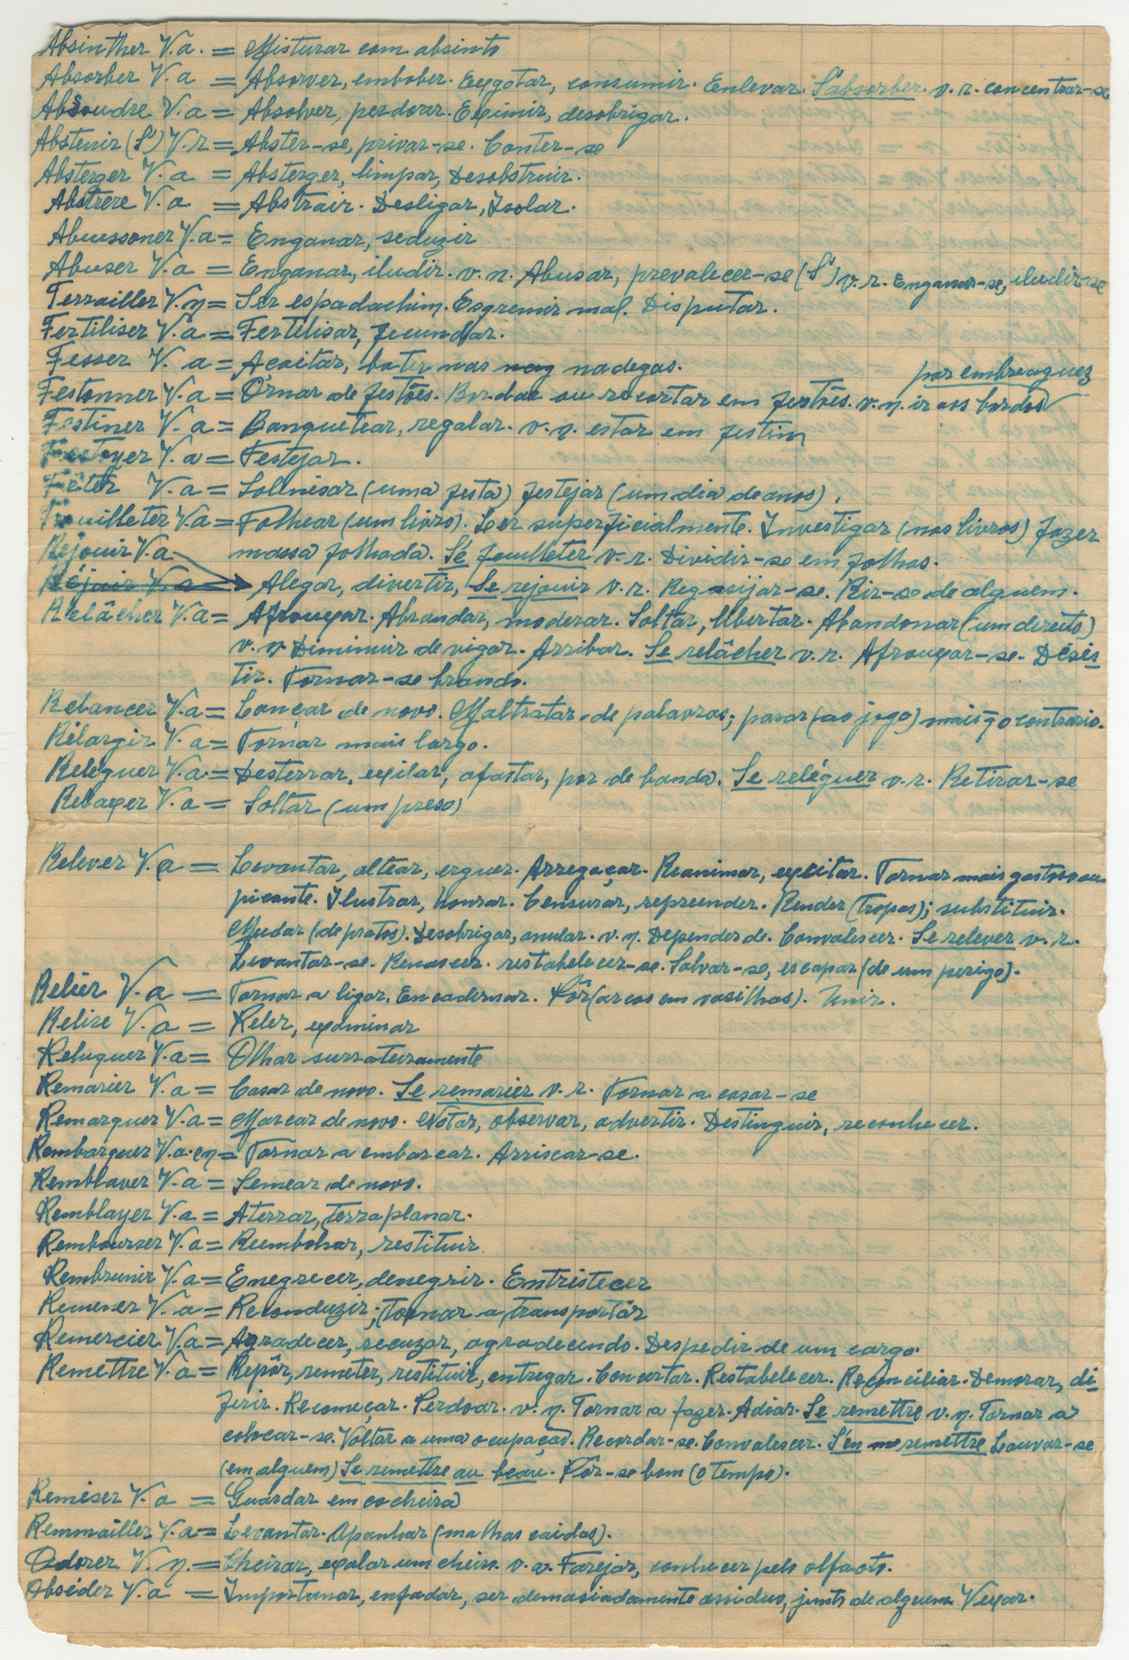 Absinther V.a. = Misturar com absinto
Absorber V.a = Absorver, embeber. Exgotar, consumir. Enlevar. S'absorber. v.r. concentrar-se
Absoudre V.a = Absolver, perdoar. Eximir, desobrigar.
Abstenir (S') V.r = Abster-se, privar-se. Conter-se
Absterger V.a = Absterger, limpar, Desobstruir.
Abstrere V.a = Abstrair. Desligar, Isolar.
Abuessoner V.a = Enganar, seduzir
Abuser V.a = Enganar, iludir. v.n. Abusar, prevalecer-se (S') v.r. Enganar-se, iludir-se
Ferrailler V.n = Ser espadachim. Esgremir mal. Disputar.
Fertiliser V.a = Fertilisar, fecundar.
Fesser V.a = Açoitar, bater nas nadegas.
por embreaguez
Festonner V.a = Ornar de festões. Bordar ou recortar em festões. v.n. ir aos bordos
Festiner V.a = Banquetear, regalar. v.n. estar em festim
Festoyer V.a = Festejar.
Fêter V.a = Solenisar (uma festa) festejar (um dia de anos).
Feuilleter V.a = Folhear (um livro). Ler superficialmente. Investigar (nos livros) fazer
Réjouir V.a massa folhada. Se feuilleter v.r. Dividir-se em folhas.
Réjouir V.a = Alegar, divertir, Se rejouir v.r. Regozijar-se. Rir-se de alguem.
Relâcher V.a = Afrouxar. Abrandar, moderar. Soltar, libertar. Abandonar (um direito)
v.n Diminuir de vigor. Arribar. Se relâcher v.r. Afrouxar-se. Desis
tir. Tornar-se brando.
Relancer V.a = Lançar de novo. Maltratar de palavras; parar (ao jogo) mais q̄ o contrario.
Rélargir V.a = Tornar mais largo.
Releguer V.a = Desterrar, exilar, afastar, por de banda. Se reléguer v.r. Retirar-se
Relaxer V.a = Soltar (um preso)
Relever V.a = Levantar, altear, erguer. Arregaçar. Reanimar, excitar. Tornar mais gostoso ou
picante. Ilustrar, honrar. Censurar, repreender. Render (tropas); substituir.
Mudar (de pratos). Desobrigar, anular. v.n. Depender de. Convalescer. Se relever v.r.
Levantar-se. Renascer. restabelecer-se. Salvar-se, escapar (de um perigo).
Relier V.a = Tornar a ligar. Encadernar. Pôr (arcos em vasilhas). Unir.
Relire V.a = Reler, examinar
Reluquer V.a = Olhar surrateiramente
Remarier V.a = Casar de novo. Se remarier v.r. Tornar a casar-se
Remarquer V.a = Marcar de novo. Notar, observar, advertir. Destinguir, reconhecer.
Rembarquer V.a. en = Tornar a embarcar. Arriscar-se.
Remblaver V.a = Semear de novo.
Remblayer V.a = Aterrar, terraplanar.
Rembourser V.a = Reembolsar, restituir
Rembrunir V.a = Enegrecer, denegrir. Entristecer
Remener V.a = Reconduzir; tornar a transportár
Remercier V.a = Agradecer, recuzar, agradecendo. Despedir de um cargo.
Remettre V.a = Repôr, remeter, restituir, entregar. Concertar. Restabelecer. Reconciliar. Demorar, di-
ferir. Recomeçar. Perdoar. v.n. Tornar a fazer. Adiar. Se remettre v.n. Tornar a
colocar-se. Voltar a uma ocupação. Recordar-se. Convalescer. S'en remettre Louvar-se
(em alguem) Se remettre au beau. Pôr-se bom (o tempo).
Remiser V.a = Guardar em cocheira
Remmailler V.a = Levantar. Apanhar (malhas caidas).
Odorer V.n. = Cheirar, exalar um cheiro. v.a. Farejar, conhecer pelo olfacto.
Obséder V.a = Importunar, enfadar, ser demasiadamente assiduo, junto de alguem Vexar.